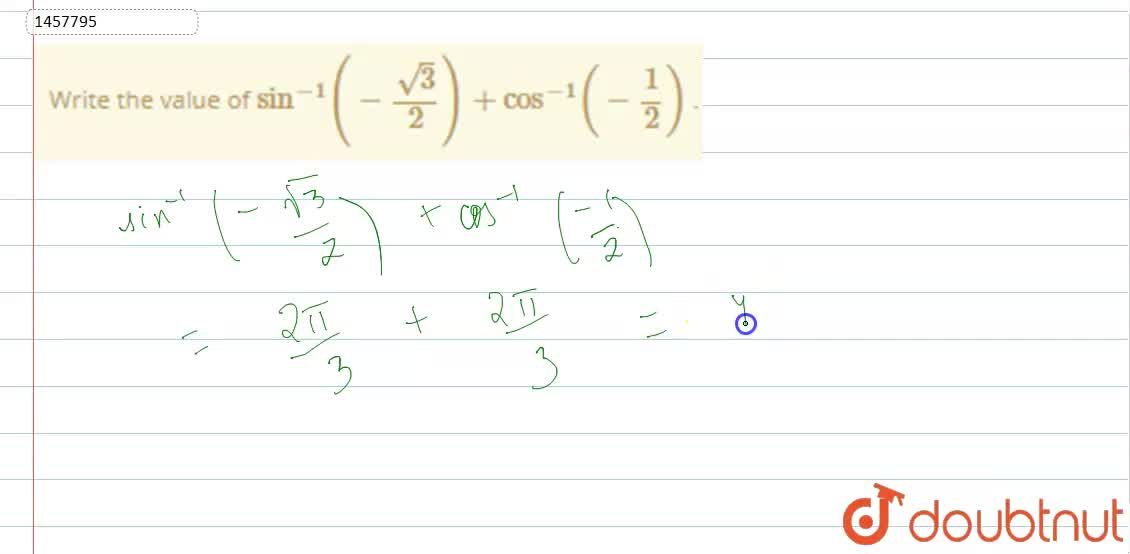 1457795
Write the value of sin⁻¹(−√3/2) + cos⁻¹(−1/2).
sin⁻¹(−√3/2) + cos⁻¹(−1/2)
= 2π/3 + 2π/3 = 4
doubtnut